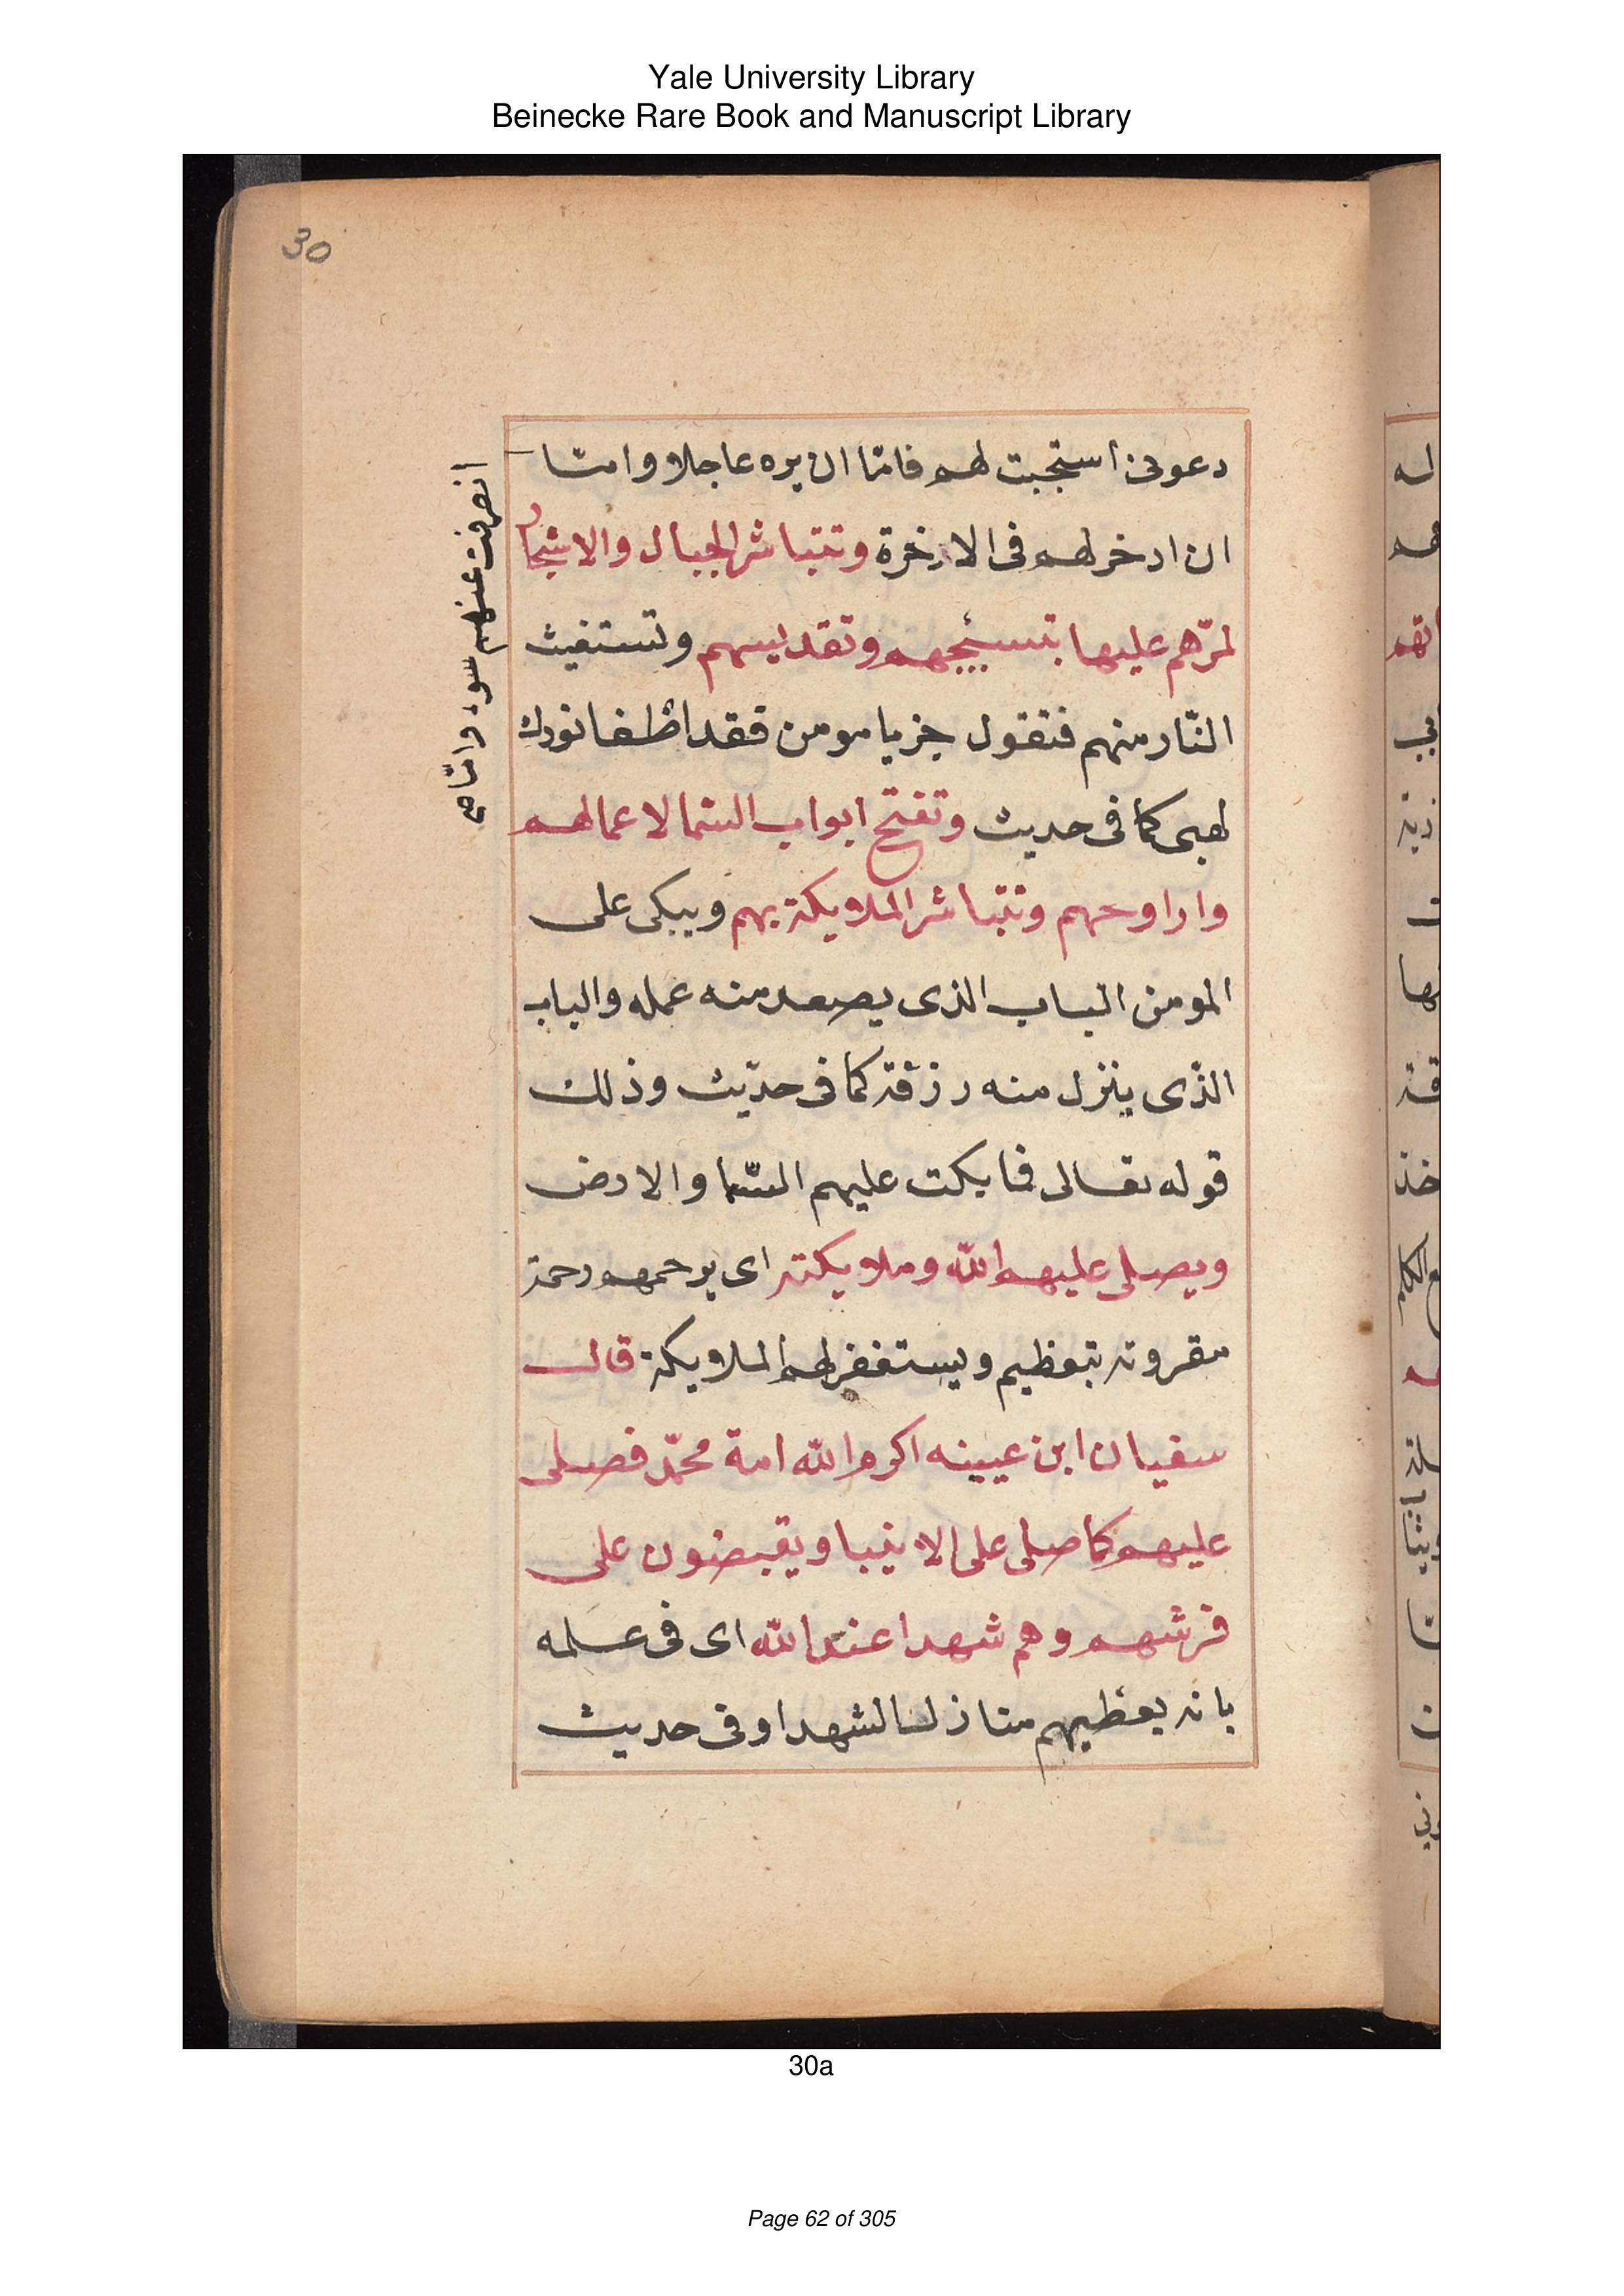 Yale University Library
Beinecke Rare Book and Manuscript Library
30
دعونى استجبت لهم فامّا ان يره عاجلا وامّا
انصرفت عنهم سوء وامّا صح
ان ادخر لهم فى الاخرة وتتباشر الجبال والاشجار
لمرّهم عليها بتسبيحهم وتقديسهم وتستغيث
النّار منهم فتقول جز يا مومن فقد اطفا نورك
لهبى كما فى حديث وتفتح ابواب السّما لاعمالهم
وارواحهم وتتباشر الملايكة بهم ويبكى على
المومن الباب الذى يصعد منه عمله والباب
الذّى ينزل منه رزقه كما فى حديث وذلك
قوله تعالى فما بكت عليهم السّما والارض
ويصلى عليهم الله وملايكته اى يرحمهم رحمة
مقرونة بتعظيم ويستغفر لهم الملايكة قال
سفيان ابن عيينه اكرم الله امة محمّد فصلى
عليهم كما صلى على الانبيا ويقبضون على
فرشهم وهم شهدا عند الله اى فى علمه
بانه يعطيهم منازل الشهدا وفى حديث
30a
Page 62 of 305